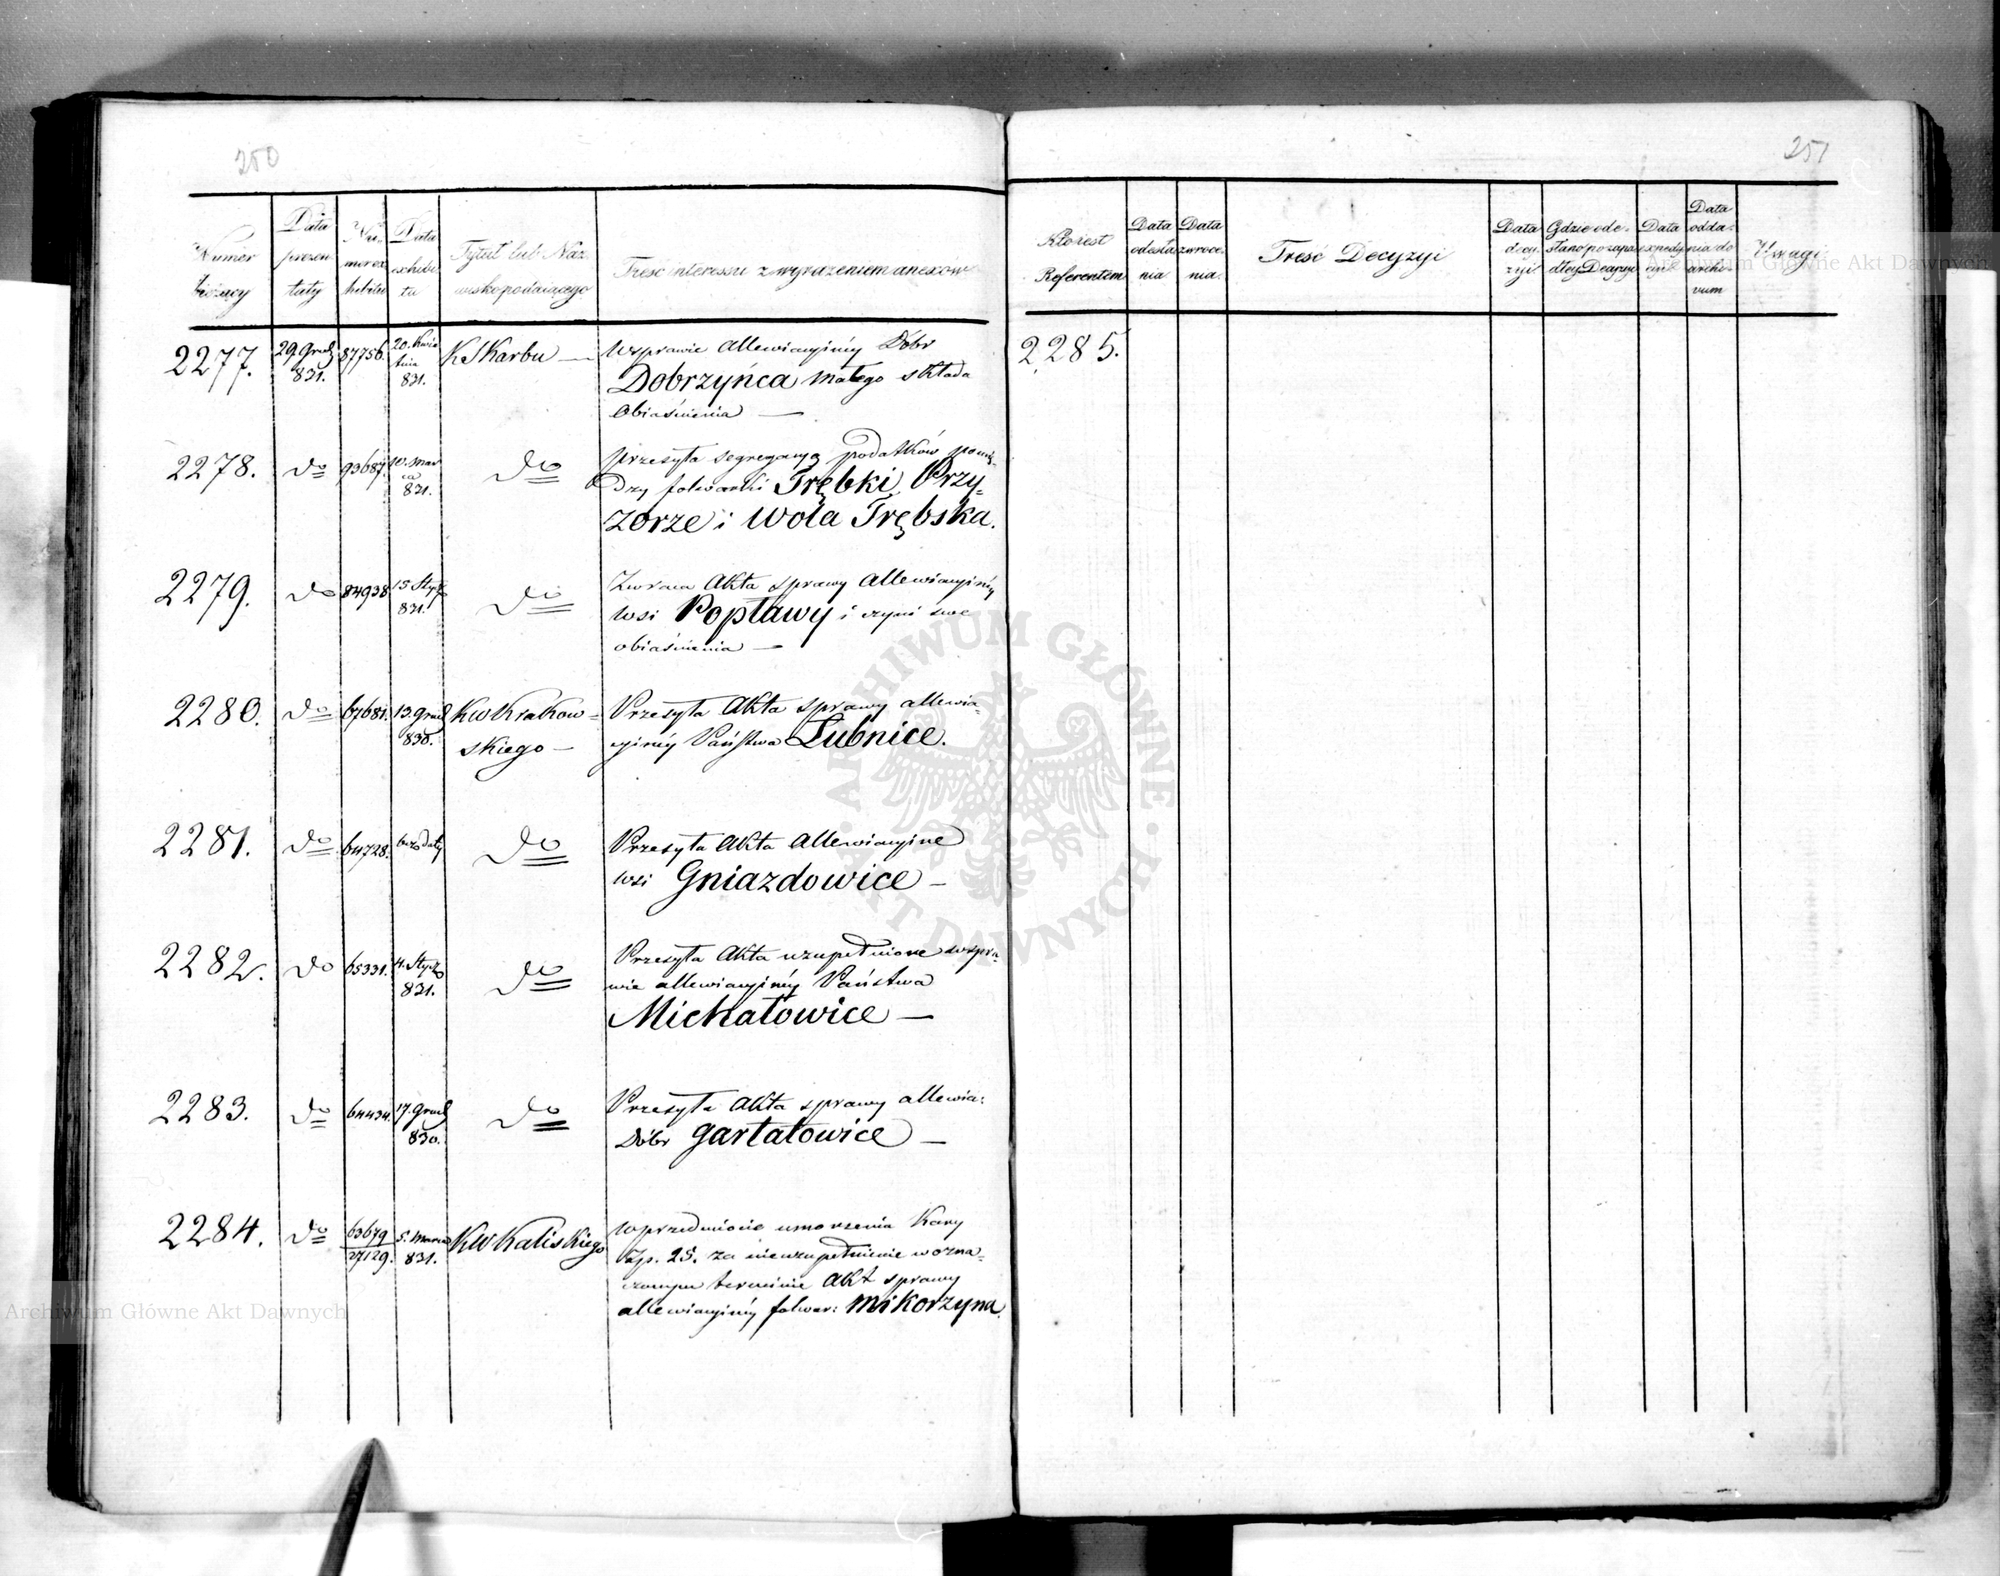 250
Numer
bieżący
Data
prezen
taty
Nu-
mer ex
hibitu
Data
exhibi
tu
Tytuł lub Naz
wisko podaiącego
Treść interessu z wyrażeniem anexów
2277. 29. Grud. 87756. 20. Kwie K S Karbu — W sprawie allewiacyjnéy Dóbr
831. tnia
831. Dobrzyńca małego składa
obiaśnienia —
2278. do 93687. 10. mar do przesyła segregacyą podatków pomię-
ca
831. dzy folwarki Trębki, Przy-
zorze i Wola Trębska.
2279. do 84938 15 Stycz do Zwraca Akta sprawy allewiacyjnéy
831. wsi Popławy i czyni swe
obiaśnienia —
2280. do 67681. 13. Grud KW Krakow- Przesyła Akta sprawy allewia-
830. skiego — cyjnéy Państwa Łubnice.
2281. do 64728. bez daty do Przesyła Akta Allewiacyjne
wsi Gniazdowice —
2282. do 65331. 4. Stycz do Przesyła Akta uzupełnione w spra-
831. wie allewiacyjnéy Państwa
Michałowice —
2283. do 64434. 17. Grud do Przesyła Akta sprawy allewia:
830. Dóbr Gartatowice —
2284. do 63679 5. Marca KW Kaliskiego W przedmiocie umorzenia Kary
27129. 831. Złp. 25. za nieuzupełnienie w ozna-
czonym terminie Akt sprawy
allewiacyjnéy folwar: Mikorzyna.
251
Kto iest
Referentem
Data
odesła
nia
Data
zwroce-
nia.
Treść Decyzyi
Data
decy
zyi
Gdzie ode-
słano po zapa
dłey Decyzyi
Data
expedy
cyi
Data
odda-
nia do
archi-
vum
Uwagi
2285.
ARCHIWUM GŁÓWNE
AKT DAWNYCH
Archiwum Główne Akt Dawnych
Archiwum Główne Akt Dawnych